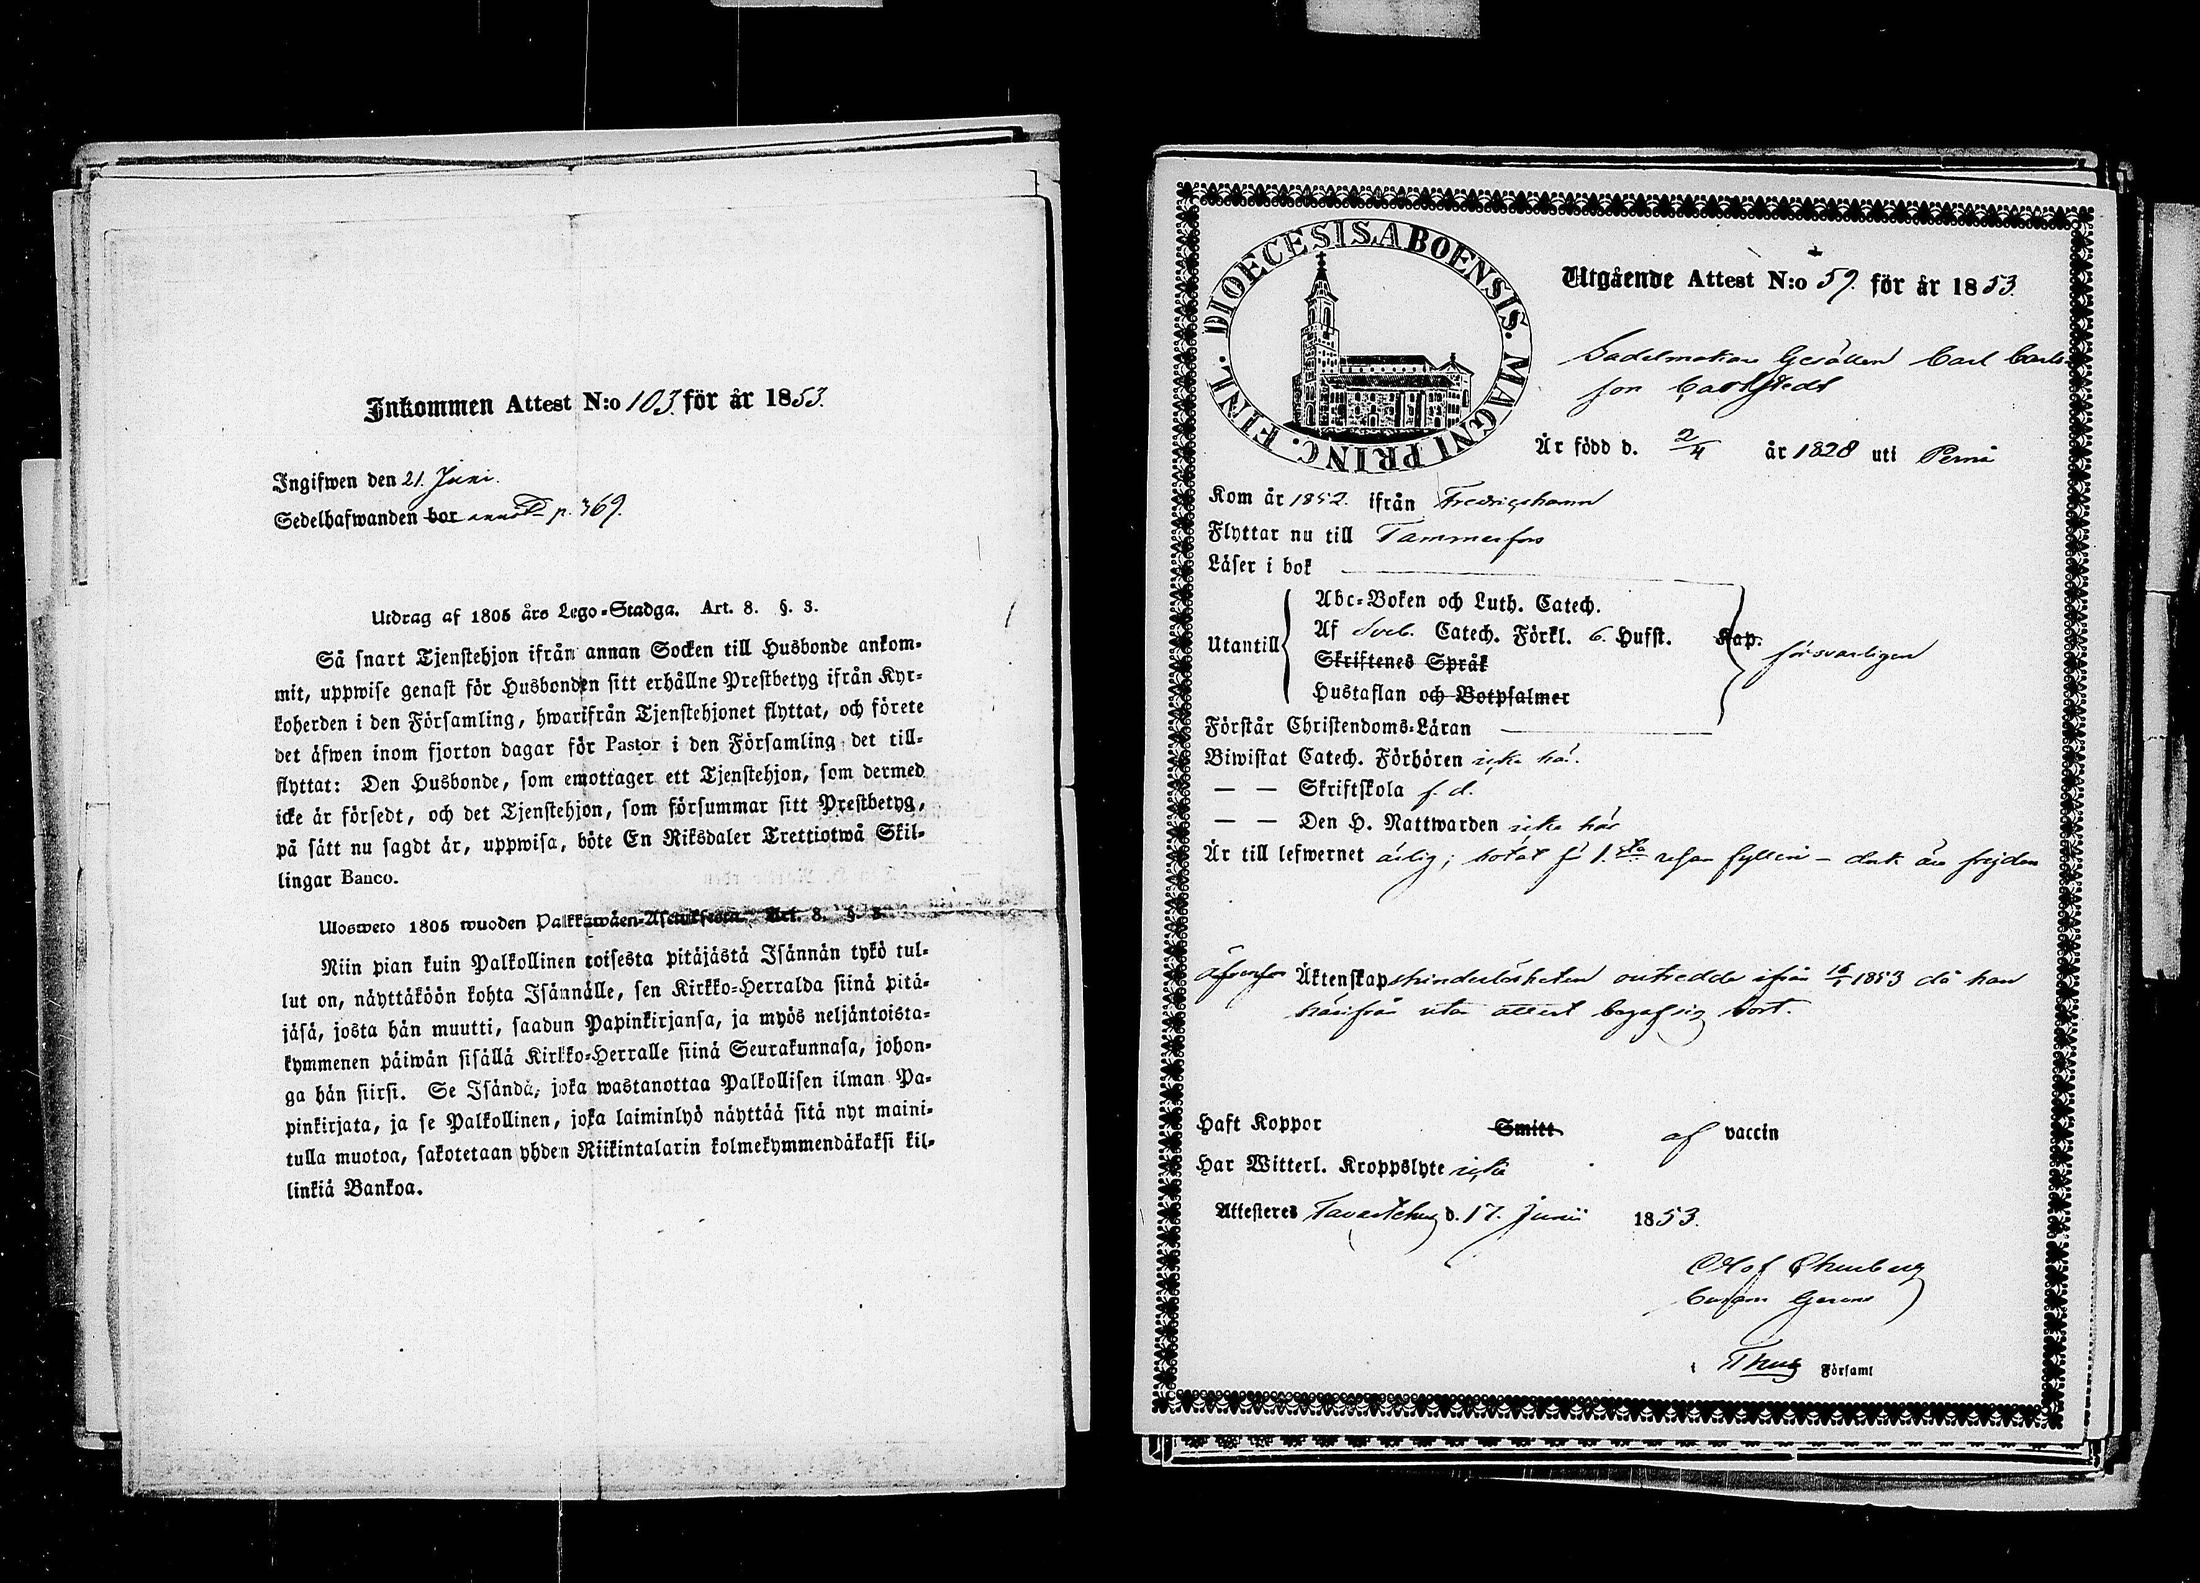 Inkommen Attest N:o 103. för år 1853.
Ingifwen den 21. Juni.
Sedelhafwanden bor annot. p. 369.
Utdrag af 1805 års Lego-Stadga. Art. 8. §. 3.
Så snart Tjenstehjon ifrån annan Socken till Husbonde ankom-
mit, uppwise genast för Husbonden sitt erhållne Prestbetyg ifrån Kyr-
koherden i den Församling, hwarifrån Tjenstehjonet flyttat, och förete
det äfwen inom fjorton dagar för Pastor i den Församling det till-
flyttat: Den Husbonde, som emottager ett Tjenstehjon, som dermed
icke är försedt, och det Tjenstehjon, som försummar sitt Prestbetyg,
på sätt nu sagdt är, uppwisa, böte En Riksdaler Trettiotwå Skil-
lingar Banco.
Ulosweto 1805 wuoden Palkkawäen-Asetuksesta. Art. 8. §. 3.
Niin pian kuin Palkollinen toisesta pitäjästä Isännän tykö tul-
lut on, näyttäköön kohta Isännälle, sen Kirkko-Herralda siinä pitä-
jäsä, josta hän muutti, saadun Papinkirjansa, ja myös neljäntoista-
kymmenen päiwän sisällä Kirkko-Herralle siinä Seurakunnasa, johon-
ga hän siirsi. Se Isändä, joka wastanottaa Palkollisen ilman Pa-
pinkirjata, ja se Palkollinen, joka laiminlyö näyttää sitä nyt maini-
tulla muotoa, sakotetaan yhden Riikintalarin kolmekymmendäkaksi kil-
linkiä Bankoa.
DIOECESIS ABOENSIS. MAGNI PRINC. FINL.
Utgående Attest N:o 59. för år 1853.
Sadelmakare Gesällen Carl Carls-
son Carlstedt
Är född d. 2/4 år 1828 uti Pernå
Kom år 1852. ifrån Fredrigshamn
Flyttar nu till Tammerfors
Läser i bok
Utantill
Abc-Boken och Luth. Catech.
Af Sveb. Catech. Förkl. 6. Hufst. Kap.
Skriftenes Språk
Hustaflan och Botpsalmer
försvarligen
Förstår Christendoms-Läran
Biwistat Catech. Förhören icke här.
— — Skriftskola f. d.
— — Den H. Nattwarden icke här
Är till lefwernet ärlig; bötat för 1.sta resan fylleri – dock än frejden
Äktenskapshinderlösheten outredde ifrån 1853 då han
härifrån utan attest begaf sig bort.
Haft Koppor Smitt af vaccin
Har Witterl. Kroppslyte icke
Attesteres Tavastehus d. 17. Junii 1853.
Olof
i Thus Församl